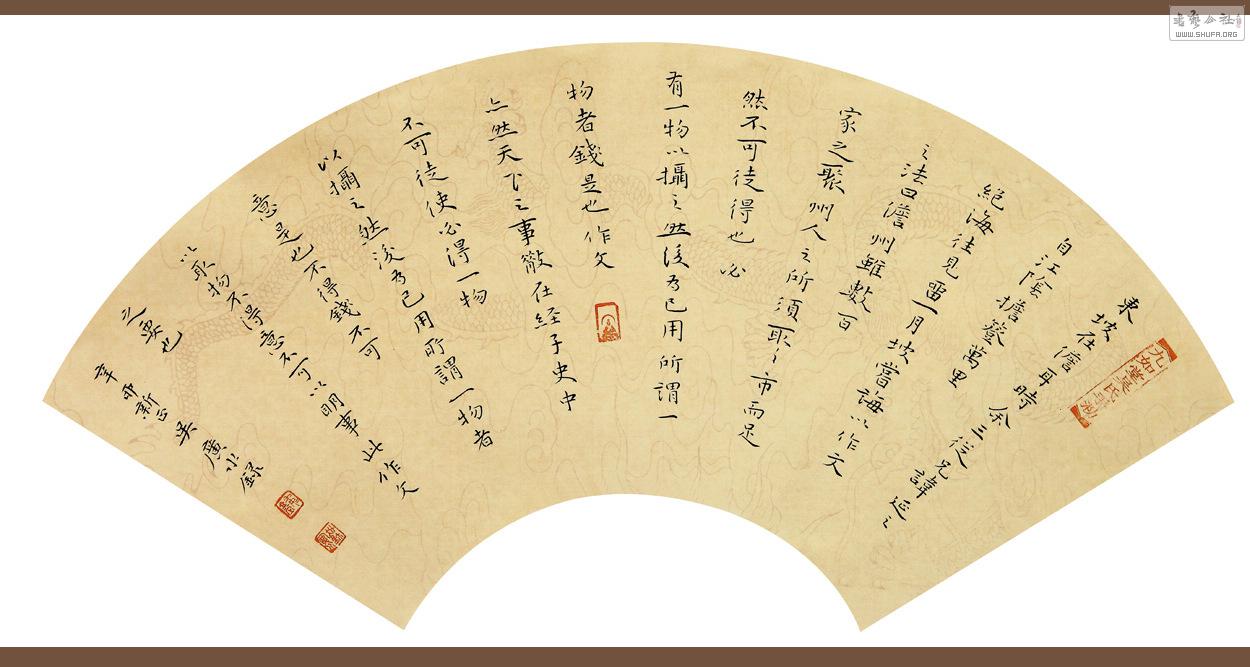 東坡在儋耳時余三從兄諱延之
自江陰擔簦萬里
絕海往見留一月坡嘗誨以作文
之法曰儋州雖數百
家之聚州人之所須取之市而足
然不可徒得也必
有一物以攝之然後为己用所謂一
物者錢是也作文
亦然天下之事散在经子史中
不可徒使必得一物
以攝之然後为己用所謂一物者
意是也不得錢不可
以取物不得意不可以明事此作文
之要也
辛卯新正吳廣水録
九如堂吳氏
書藝公社
WWW.SHUFA.ORG